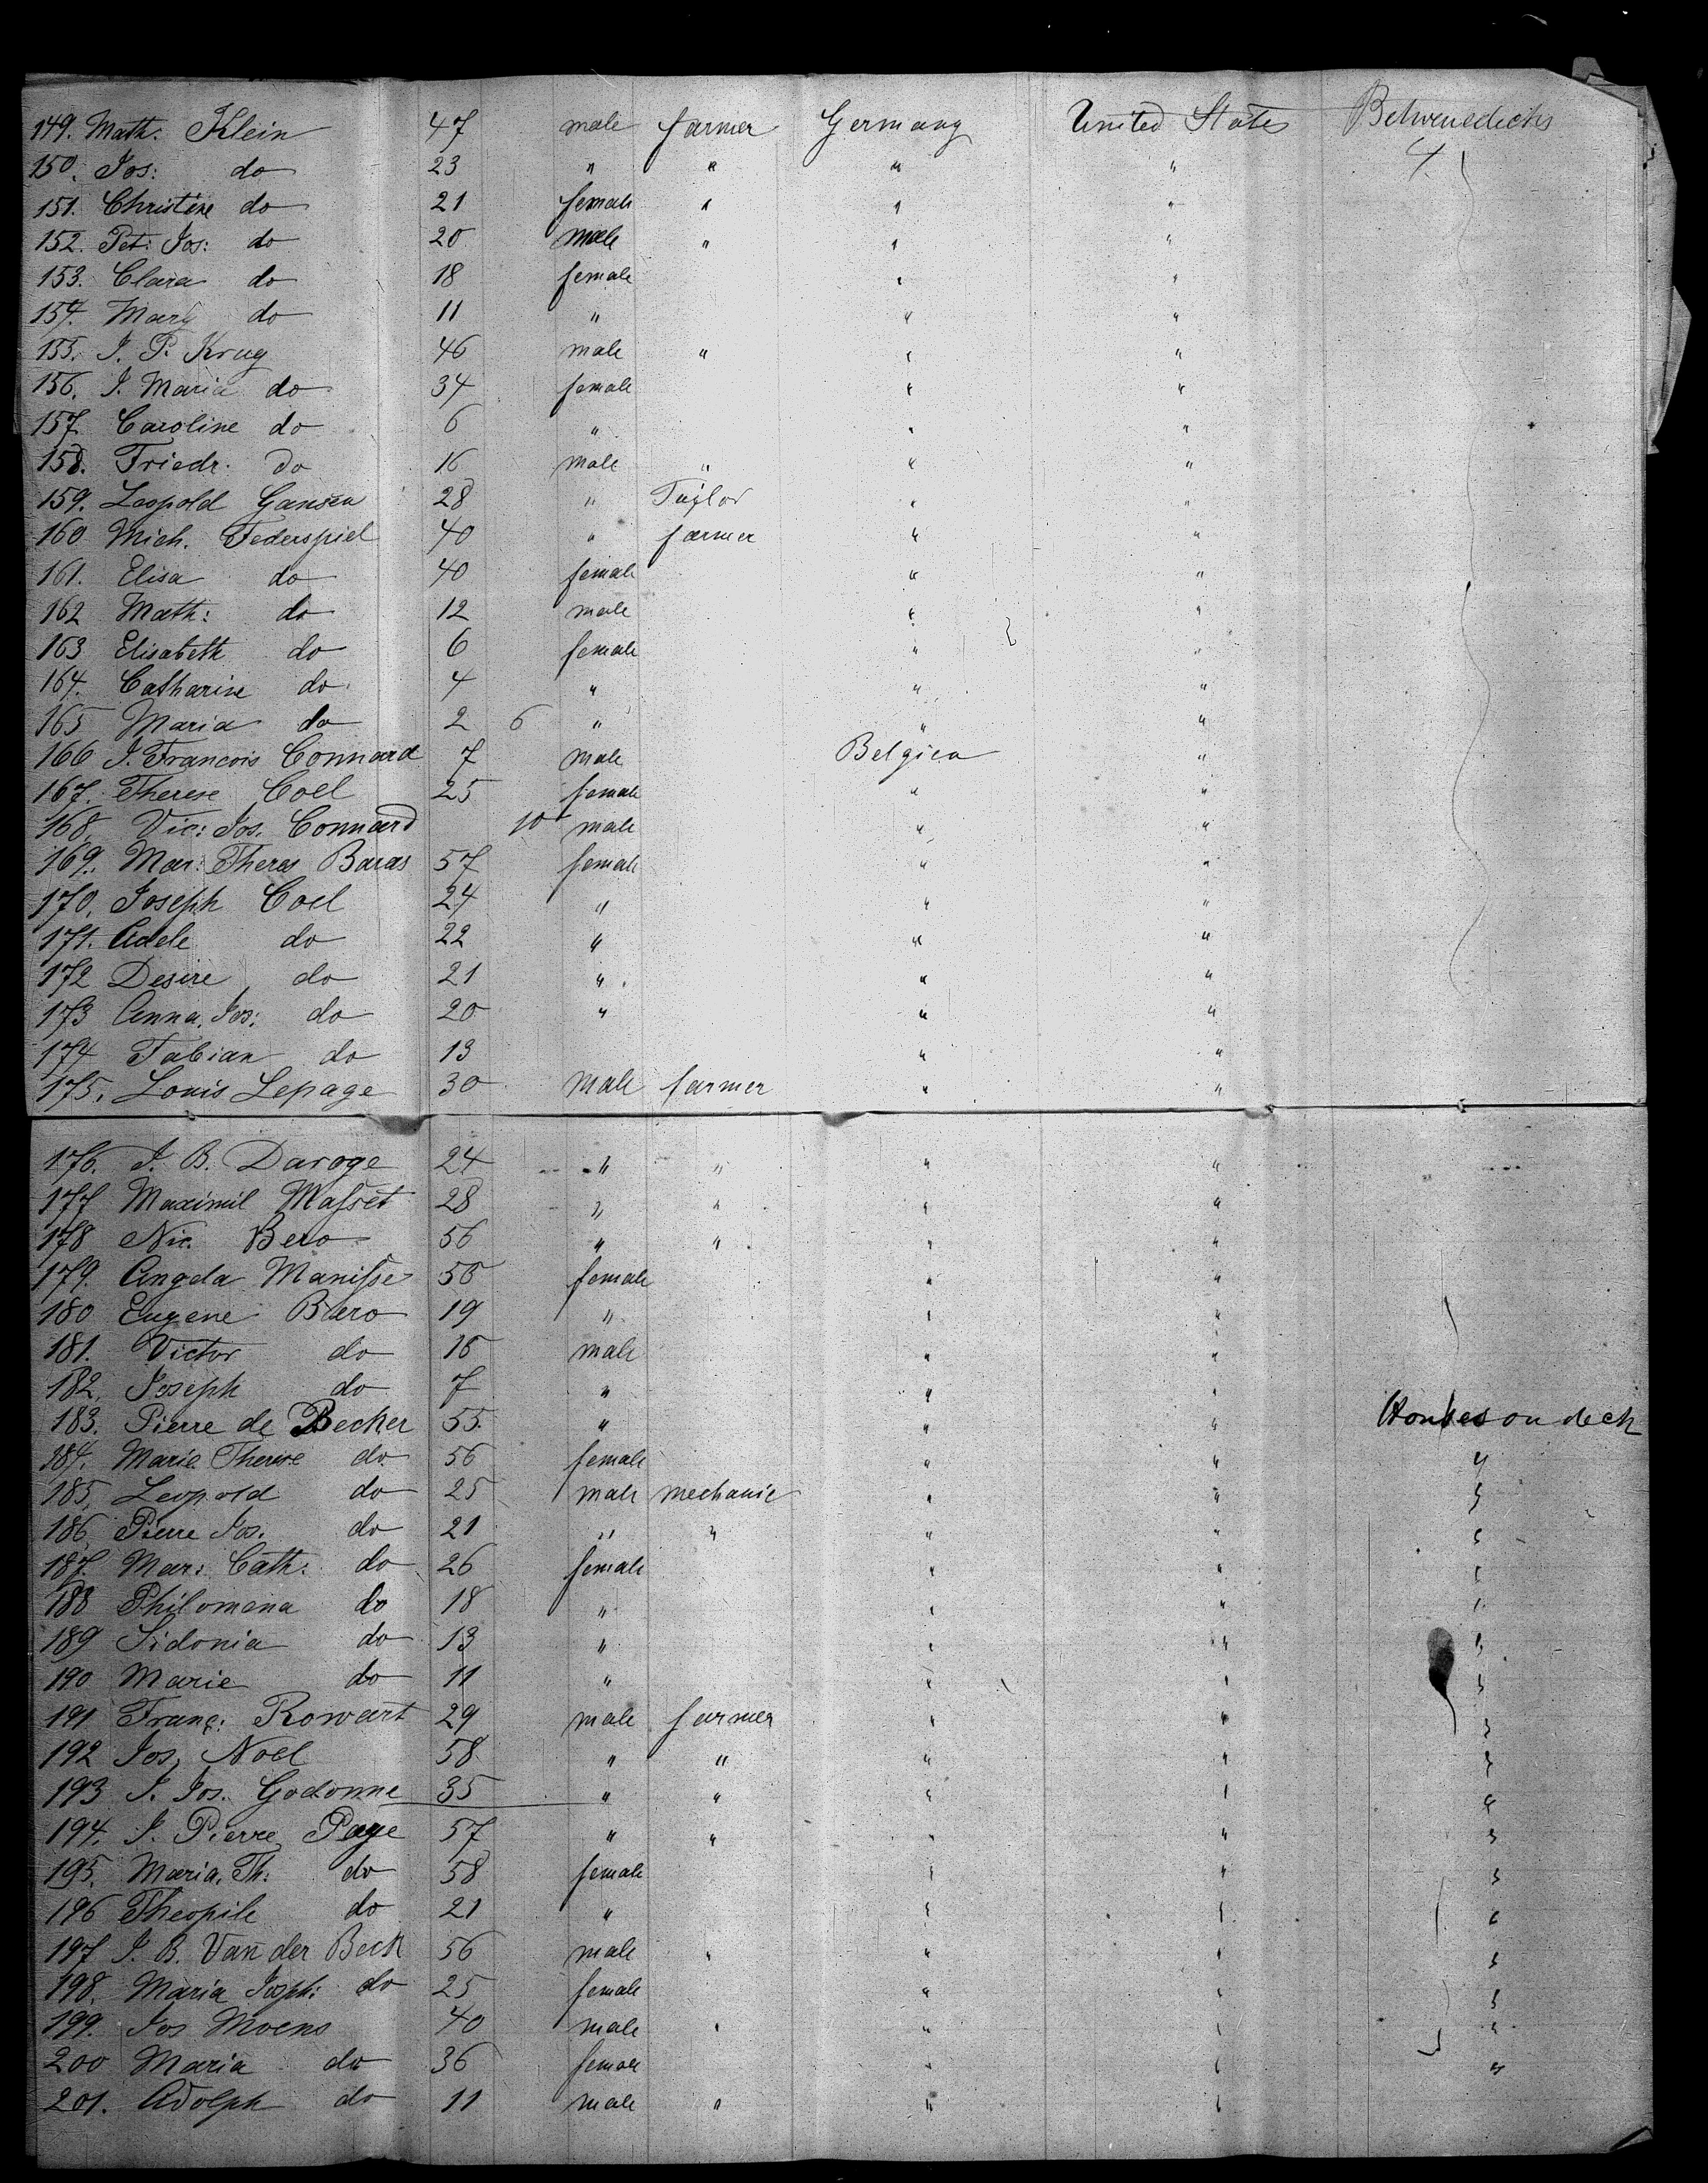 149. Math: Klein 47 male farmer Germany United States Betwenedecks
150. Jos: do 23 " " " " 4.
151. Christine do 21 female " " "
152. Pet: Jos: do 20 male " " "
153. Clara do 18 female " "
154. Mary do 11 " " "
155. J. P. Krug 46 male " " "
156. J. Maria do 34 female " "
157. Caroline do 6 " " "
158. Friedr. do 16 male " " "
159. Leopold Gansen 28 " Taylor " "
160 Mich. Federspiel 40 " farmer " "
161. Elisa do 40 female " "
162 Math: do 12 male " "
163 Elisabeth do 6 female " "
164. Catharine do 4 " " "
165 Maria do 2 6 " " "
166 J. Francois Connard 7 male Belgien "
167. Therese Coel 25 female " "
168. Vic: Jos. Connard 10 male " "
169. Mar: Theres Baras 57 female " "
170. Joseph Coel 24 " " "
171. Adele do 22 " " "
172 Desire do 21 " " "
173 Anna. Jos: do 20 " " "
174 Fabian do 13 " "
175. Louis Lepage 30 male farmer " "
176. J. B. Daroge 24 " " " "
177 Maximil Masset 28 " " " "
178 Nic. Bero 56 " " " "
179. Angela Manisse 56 female " "
180 Eugene Baro 19 " " "
181. Victor do 15 male " "
182. Joseph do 7 " " "
183. Pierre de Becker 55. " " " Houses on deck
184. Marie Therese do 56 female " " "
185. Leopold do 25 male mechanic " " "
186. Pierre Jos. do 21 " " " " "
187. Mar: Cath: do 26 female " " "
188 Philomena do 18 " " " "
189 Sidonia do 13 " " " "
190 Marie do 11 " " " "
191 Franç: Rowart 29 male farmer " " "
192 Jos, Noel 58 " " " " "
193 J. Jos. Godonne 35 " " " " "
194. J. Pierre Paye 57 " " " " "
195. Maria. Th: do 58 female " " "
196 Theopile do 21 " " " "
197 J. B. Van der Beck 56 male " " " "
198. Maria Josph: do 25 female " " "
199. Jos Moens 40 male " " " "
200 Maria do 36 female " " "
201. Adolph do 11 male " " "